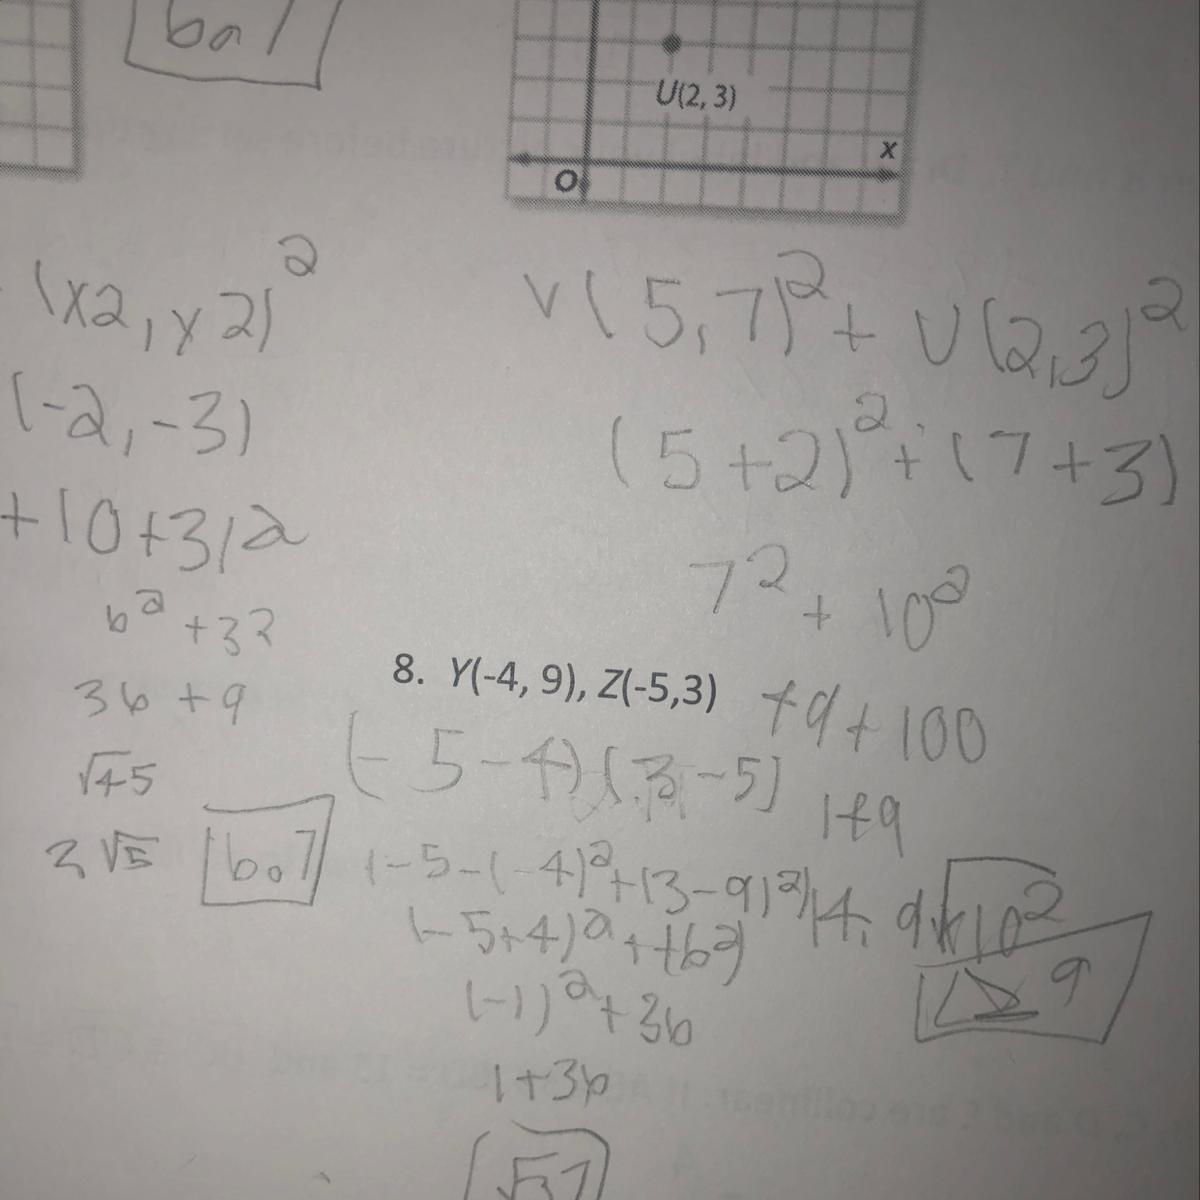 6.7
U(2, 3)
x
O
(x2, y2)²
(-2, -3)
+(0+3)2
6² + 32
36 + 9
√45
3√5
6.7
V(5,7)² + U(2,3)²
(5+2)² + (7+3)
7² + 10²
49 + 100
149
8. Y(-4, 9), Z(-5,3)
(-5-4)(3-5)
(-5-(-4)²+(3-9)²)
(-5+4)² +
(-1)² + 36
1+36
√37